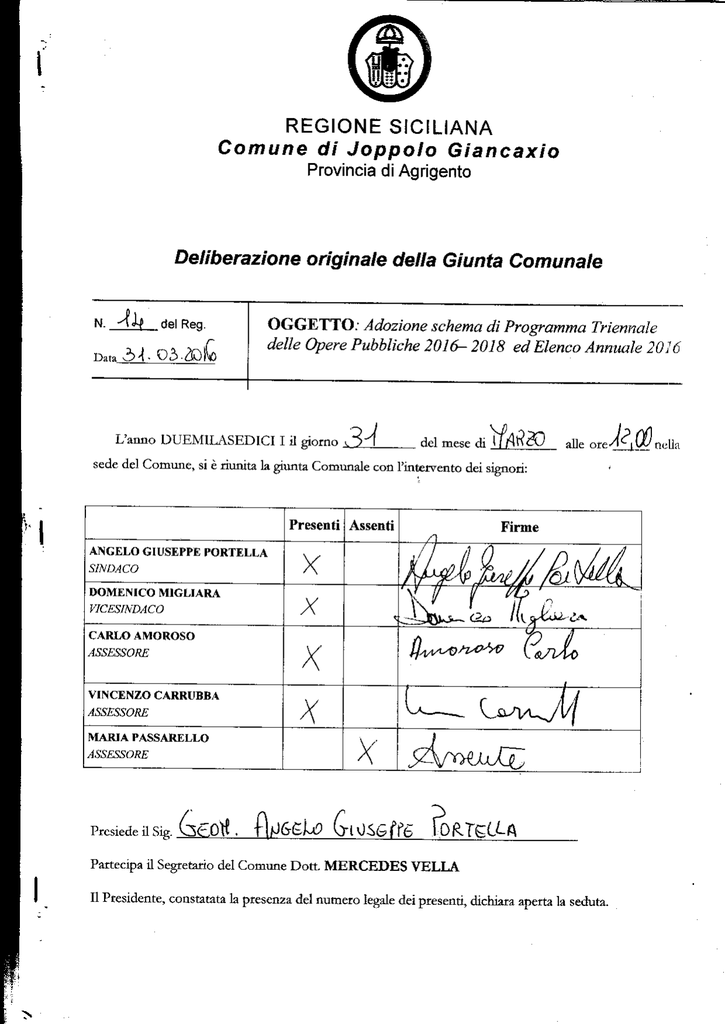 REGIONE SICILIANA
Comune di Joppolo Giancaxio
Provincia di Agrigento
Deliberazione originale della Giunta Comunale
N. 14 del Reg.
Data 31.03.2016
OGGETTO: Adozione schema di Programma Triennale
delle Opere Pubbliche 2016– 2018 ed Elenco Annuale 2016
L'anno DUEMILASEDICI I il giorno 31 del mese di MARZO alle ore 12,00 nella
sede del Comune, si è riunita la giunta Comunale con l'intervento dei signori:
Presenti Assenti Firme
ANGELO GIUSEPPE PORTELLA X Angelo Giuseppe Portella
SINDACO
DOMENICO MIGLIARA X Domenico Migliara
VICESINDACO
CARLO AMOROSO X Amoroso Carlo
ASSESSORE
VINCENZO CARRUBBA X
ASSESSORE
MARIA PASSARELLO X Assente
ASSESSORE
Presiede il Sig. GEOM. ANGELO GIUSEPPE PORTELLA
Partecipa il Segretario del Comune Dott. MERCEDES VELLA
Il Presidente, constatata la presenza del numero legale dei presenti, dichiara aperta la seduta.